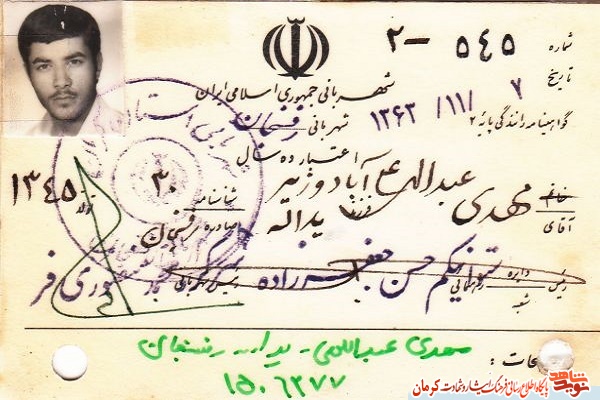 شماره ۵۴۵-۲
تاریخ ۷/۱۱/۱۳۶۳
شهربانی جمهوری اسلامی ایران
گواهینامه رانندگی پایه ۲ شهربانی رفسنجان
اعتبار ده سال
خانم آقای مهدی عبدالهی علی آباد وزیر
فرزند یداله شناسنامه ۳۰ صادره رفسنجان تولد ۱۳۴۵
رئیس شعبه دایره راهنمائی حسن جعفرزاده
مهدی عبداللهی - یداله - رفسنجان
۱۵۰۶۲۷۷
نوید شاهد
پایگاه اطلاع رسانی فرهنگ ایثار و شهادت کرمان